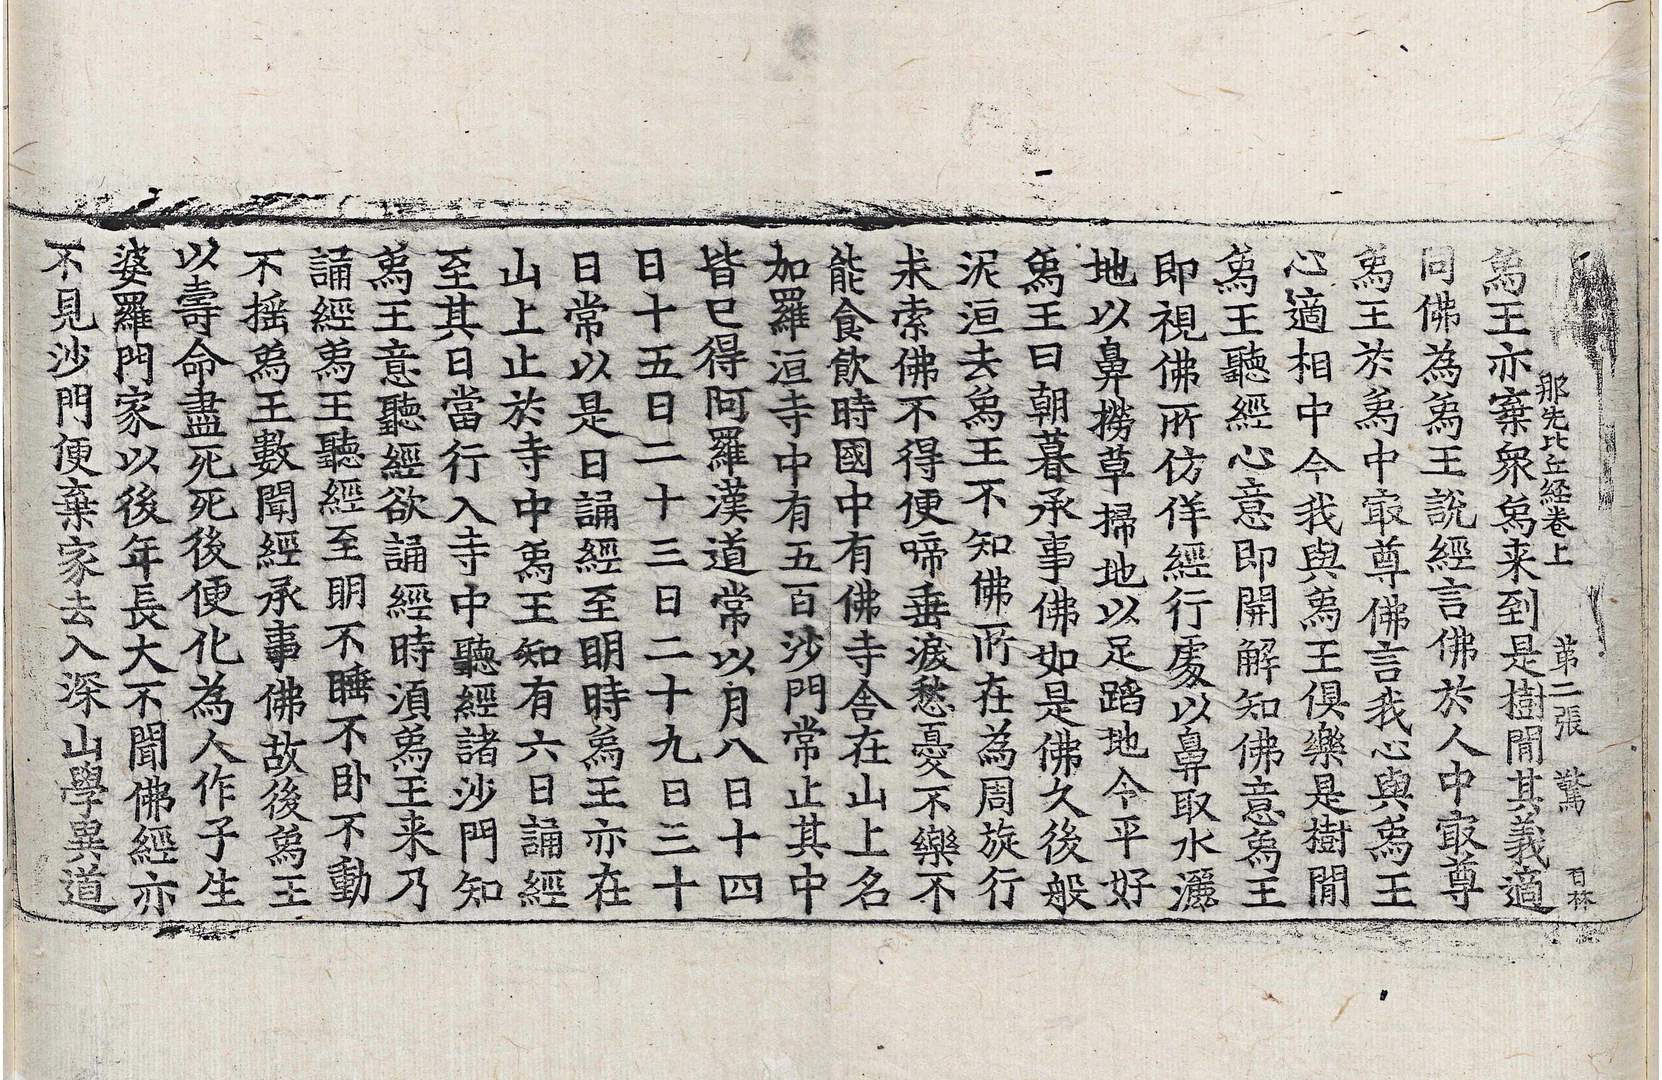 那先比丘經卷上 第二張 驚 百林
爲王亦棄衆爲来到是樹閒其義適
同佛為爲王說經言佛於人中冣尊
爲王於爲中冣尊佛言我心與爲王
心適相中今我與爲王俱樂是樹閒
爲王聽經心意即開解知佛意爲王
即視佛所仿佯經行處以鼻取水灑
地以鼻撈草掃地以足蹈地令平好
爲王日朝暮承事佛如是佛久後般
泥洹去爲王不知佛所在為周旋行
求索佛不得便啼垂淚愁憂不樂不
能食飲時國中有佛寺舍在山上名
加羅洹寺中有五百沙門常止其中
皆已得阿羅漢道常以月八日十四
日十五日二十三日二十九日三十
日常以是日誦經至明時爲王亦在
山上止於寺中爲王知有六日誦經
至其日當行入寺中聽經諸沙門知
爲王意聽經欲誦經時湏爲王来乃
誦經爲王聽經至明不睡不卧不動
不揺爲王數聞經承事佛故後爲王
以壽命盡死死後便化為人作子生
婆羅門家以後年長大不聞佛經亦
不見沙門便棄家去入深山學異道